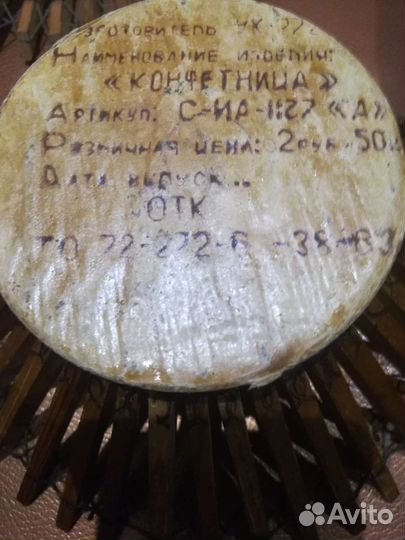 зготовитель УК
Наименование изделия:
«КОНФЕТНИЦА»
Артикул: С-ИА-1127 «А»
Розничная цена: 2руб. 50
Дата выпуск
ОТК
ТО 22-222-6 -38-83
Avito